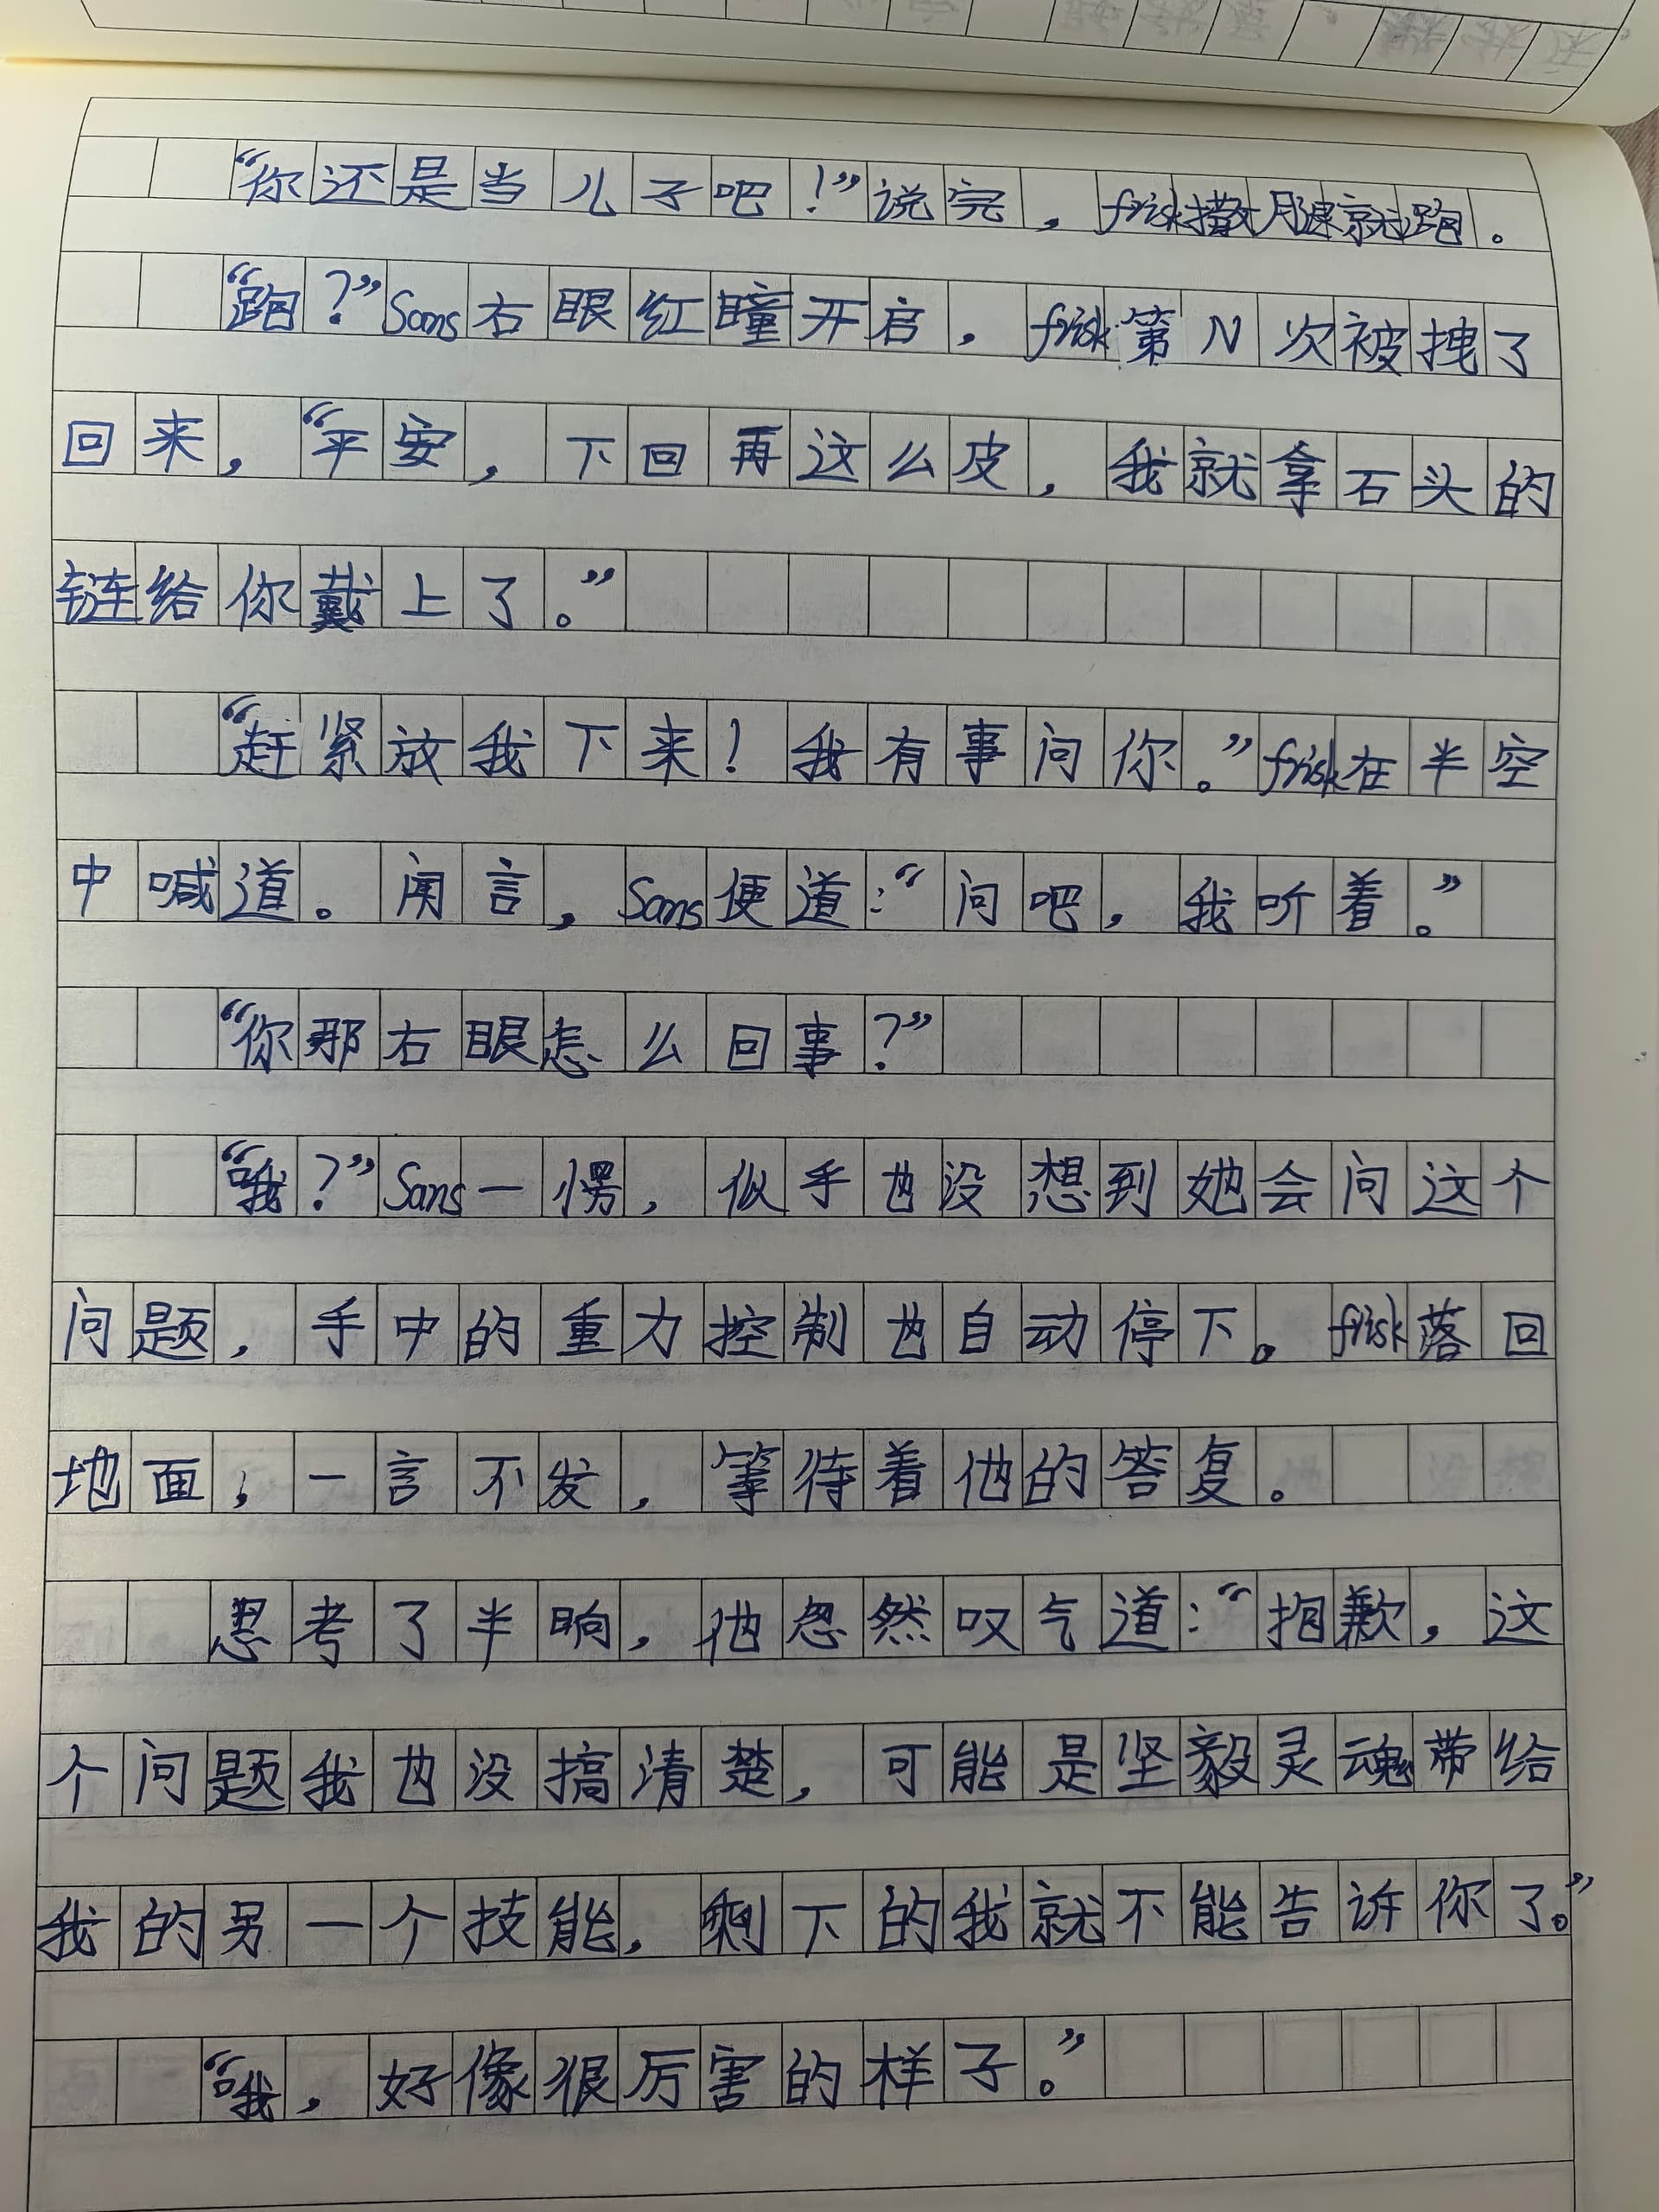 “你还是当儿子吧!”说完，frisk撒腿就跑。
“跑?”Sans右眼红瞳开启，frisk第N次被拽了
回来，“平安，下回再这么皮，我就拿石头的
链给你戴上了。”
“赶紧放我下来!我有事问你。”frisk在半空
中喊道。闻言，Sans便道:“问吧，我听着。”
“你那右眼怎么回事?”
“哦?”Sans一愣，似乎也没想到她会问这个
问题，手中的重力控制也自动停下。frisk落回
地面，一言不发，等待着他的答复。
思考了半晌，他忽然叹气道:“抱歉，这
个问题我也没搞清楚，可能是坚毅灵魂带给
我的另一个技能，剩下的我就不能告诉你了。”
“哦，好像很厉害的样子。”